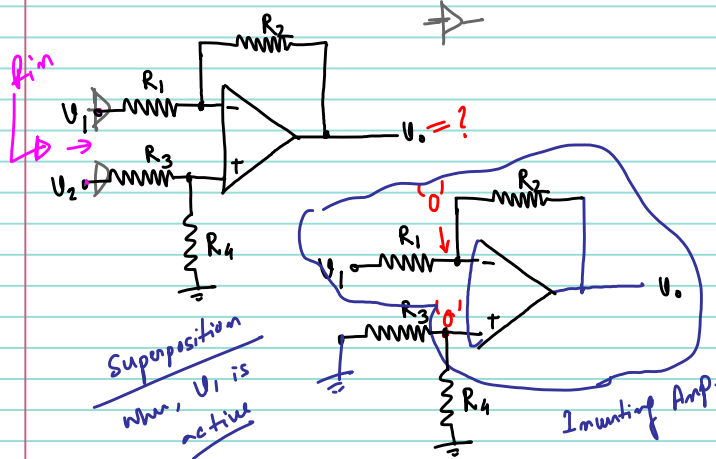 R2
Rin
R1
V1
−
V. = ?
R3
+
V2
R4
'0'
R2
R1
V1
−
V.
R3
'0'
+
R4
Superposition
when, V1 is
active
Inverting Amp.